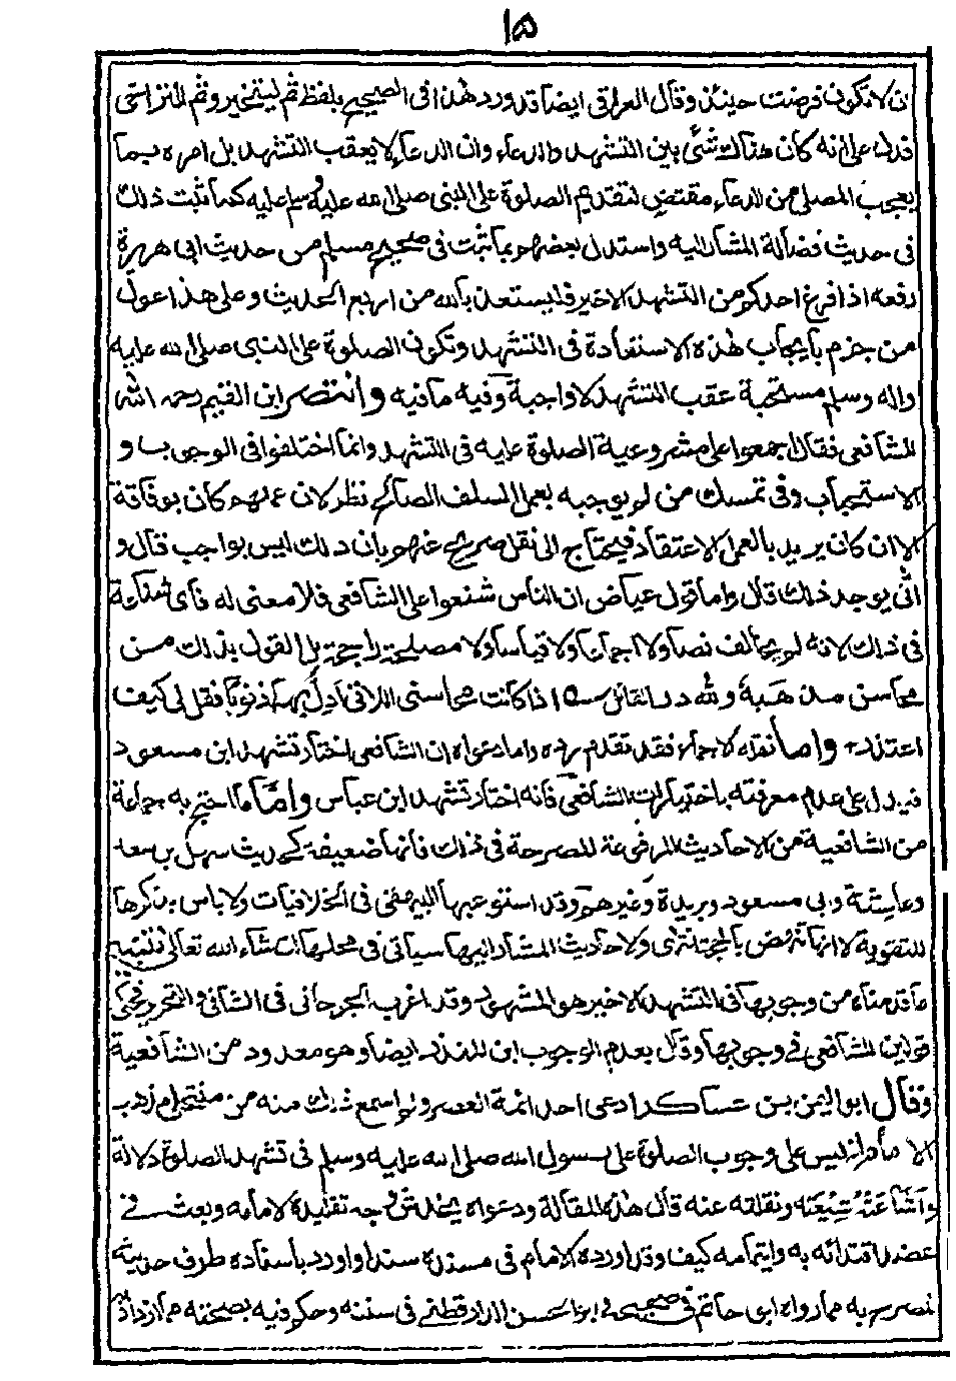 ١٥
ان لا تكون فرضت حينئذ وقال العراقي ايضا قد ورد هذا في الصحيح بلفظ ثم ليتخير وثم للتراخي
فدل على انه كان هناك شئ بين التشهد والدعاء وان الدعاء لا يعقب التشهد بل امره بما
يعجب المصلي من الدعاء مقتض لتقديم الصلوة على النبي صلى الله عليه وسلم عليه كما ثبت ذلك
في حديث فضالة المشار اليه واستدل بعضهم بما ثبت في صحيح مسلم من حديث ابي هريرة
رفعه اذا فرغ احدكم من التشهد الاخير فليستعذ بالله من اربع الحديث وعلى هذا عول
من جزم بايجاب هذه الاستعاذة في التشهد وتكون الصلوة على النبي صلى الله عليه
واله وسلم مستحبة عقب التشهد لا واجبة وفيه ما فيه وانتصر ابن القيم رحمه الله
للشافعي فقال اجمعوا على مشروعية الصلوة عليه في التشهد وانما اختلفوا في الوجوب و
الاستحباب وفي تمسك من لم يوجبه بعمل السلف الصالح نظر لان عملهم كان بوفاقة
الا ان كان يريد بالعمل الاعتقاد فيحتاج الى نقل صريح عنهم بان ذلك ليس بواجب قال و
انى يوجد ذلك قال واما قول عياض ان الناس شنعوا على الشافعي فلا معنى له فاي شناعة
في ذلك لانه لم يخالف نصا ولا اجماعا ولا قياسا ولا مصلحة راجحة بل القول بذلك من
محاسن مذهبه ولله در القائل اذا كانت محاسني اللاتي ادل بها ذنوبا فقل لي كيف
اعتذر واما نقله لاجماع فقد تقدم رده واما دعواه ان الشافعي اختار تشهد ابن مسعود
فيدل على عدم معرفته باختيارات الشافعي فانه اختار تشهد ابن عباس واما ما احتج به جماعة
من الشافعية من الاحاديث المرفوعة المصرحة في ذلك فانها ضعيفة كحديث سهل بن سعد
وعايشة وابي مسعود وبريدة وغيرهم وقد استوعبها البيهقي في الخلافيات ولا باس بذكرها
للتقوية لا انها تنهض بالحجة انتهى والاحاديث المشار اليها سياتي في محلها ان شاء الله تعالى تنبيه
ما قدمناه من وجوبها في التشهد الاخير هو المشهور وقد اغرب الجرجاني في الشافي والتحرير فحكى
قولين للشافعي في وجوبها وقال بعدم الوجوب ابن المنذر ايضا وهو معدود من الشافعية
وقال ابو اليمن بن عساكر ادعى احد ائمة العصر ولم اسمع ذلك منه من منتحلي مذهب
الامام انه ليس على وجوب الصلوة على رسول الله صلى الله عليه وسلم في تشهد الصلوة دلالة
واشاعته شيعته ونقلته عنه قال هذه المقالة ودعواه يخدش وجه تقليده لامامه وبعث في
عضد اقتدائه به وايتمامه كيف وقد اورده الامام في مسنده سندا واورد باسناده طرف حديثه
نصرح به مما رواه ابن حاتم في صحيحه وابو الحسن الدارقطني في سننه وحكم فيه بصحته مما ازداد